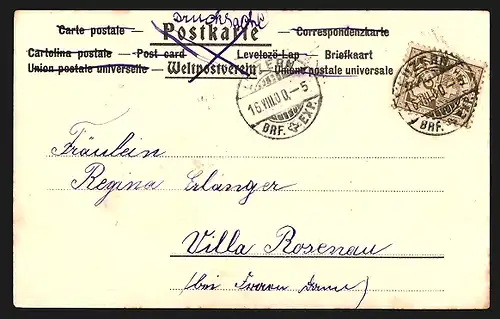 Drucksache
Carte postale — Postkarte — Correspondenzkarte
Cartolina postale — Post card — Levelező-Lap — Briefkaart
Union postale universelle — Weltpostverein — Unione postale universale
LUZERN
16.VIII.00.–5
BRF. EXP.
LUZERN
16.VIII.00.–5
BRF. EXP.
Fräulein
Regina Erlanger
Villa Rosenau
(bei